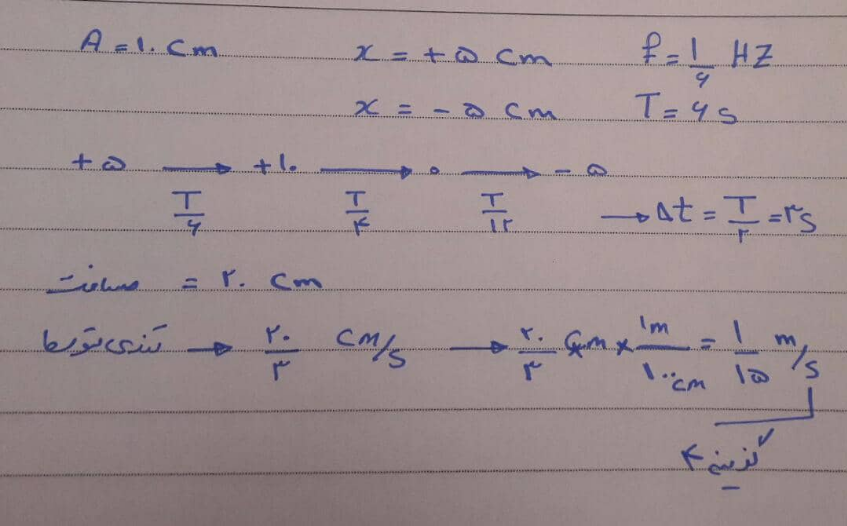 A = ۱۰ cm    x = +۵ cm    f = ۱/۶ HZ
x = -۵ cm    T = ۶ s
+۵ → +۱۰ → ۰ → -۵
T/۶    T/۴    T/۱۲    → Δt = T/۲ = ۳s
مسافت = ۲۰ cm
تندی متوسط → ۲۰/۳ cm/s → ۲۰/۳ cm × ۱m/۱۰۰cm = ۱/۱۵ m/s
گزینه ۴